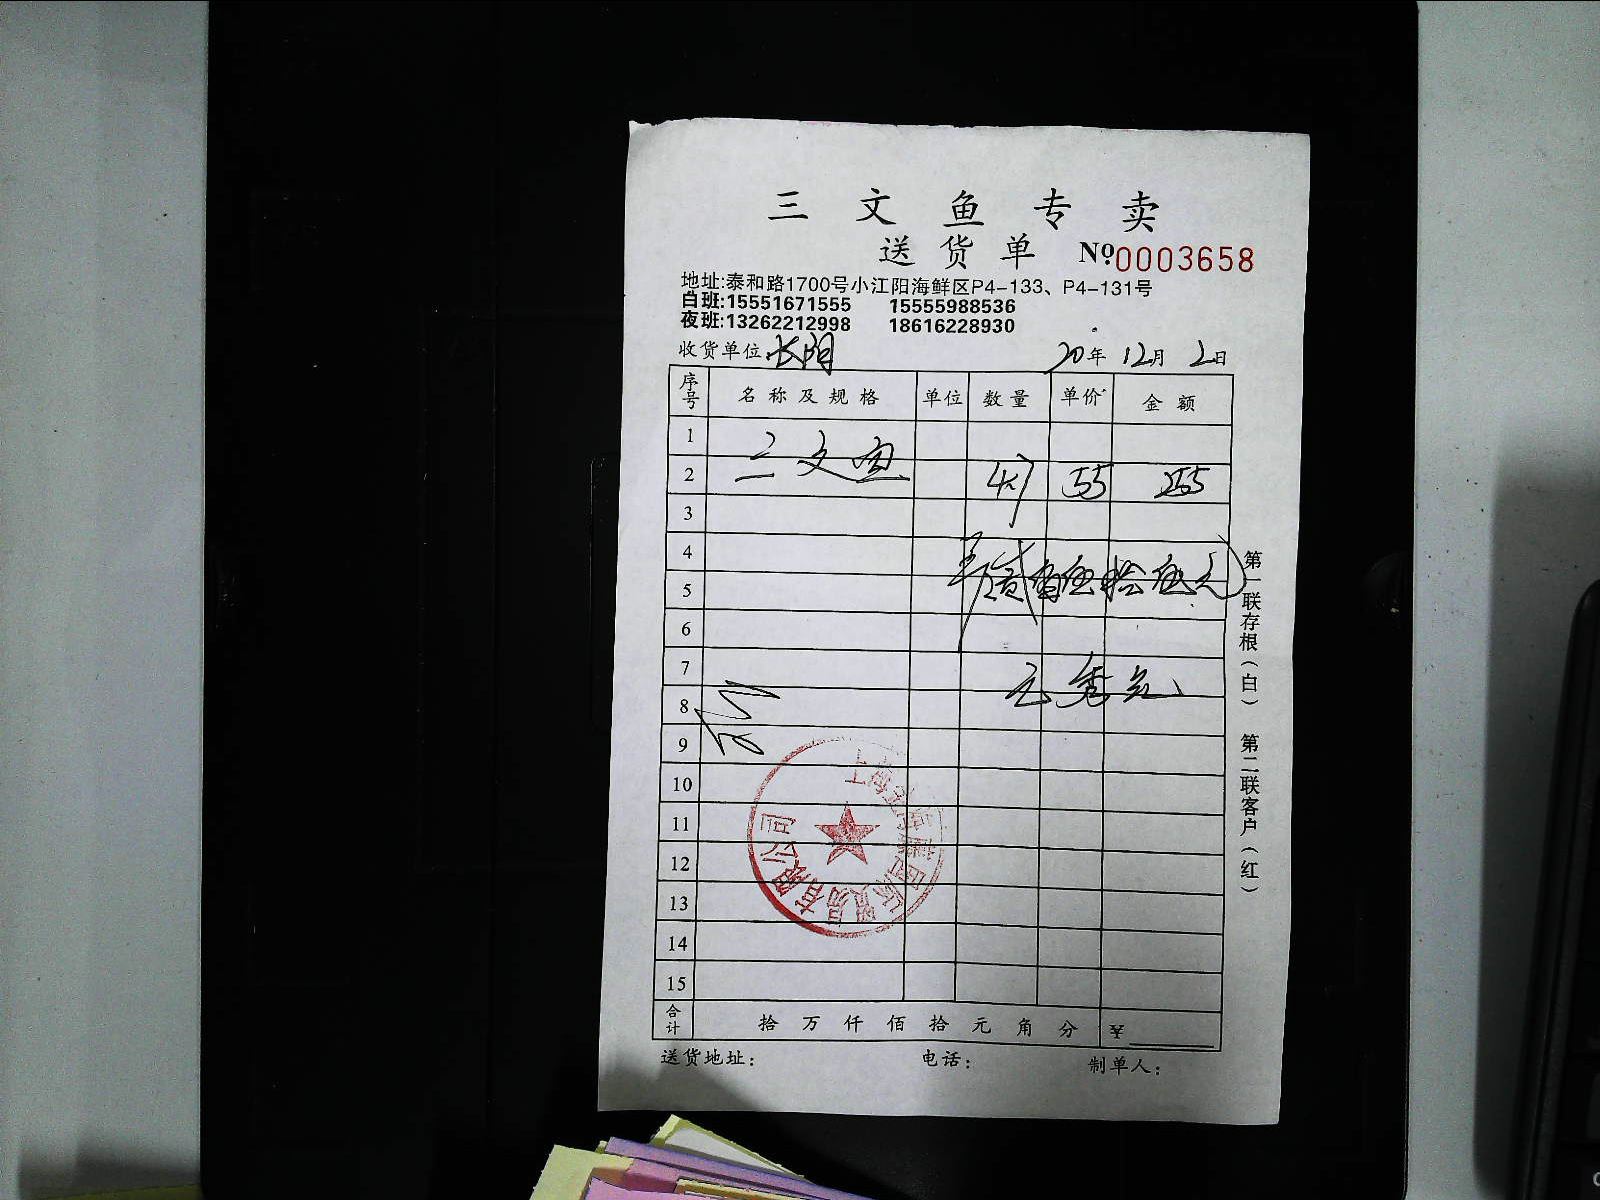 三文鱼专卖
送货单 No.0003658
地址:泰和路1700号小江阳海鲜区P4-133、P4-131号
白班:15551671555 15555988536
夜班:13262212998 18616228930
收货单位:长阳 20年12月2日
序号 名称及规格 单位 数量 单价 金额
1
2 三文鱼 55 255
3
4
5 贰佰伍拾伍元
6
7
8
9
10
11
12
13
14
15
合计 拾 万 仟 佰 拾 元 角 分 ¥
送货地址: 电话: 制单人:
第一联存根(白) 第二联客户(红)
上海 国际贸易有限公司